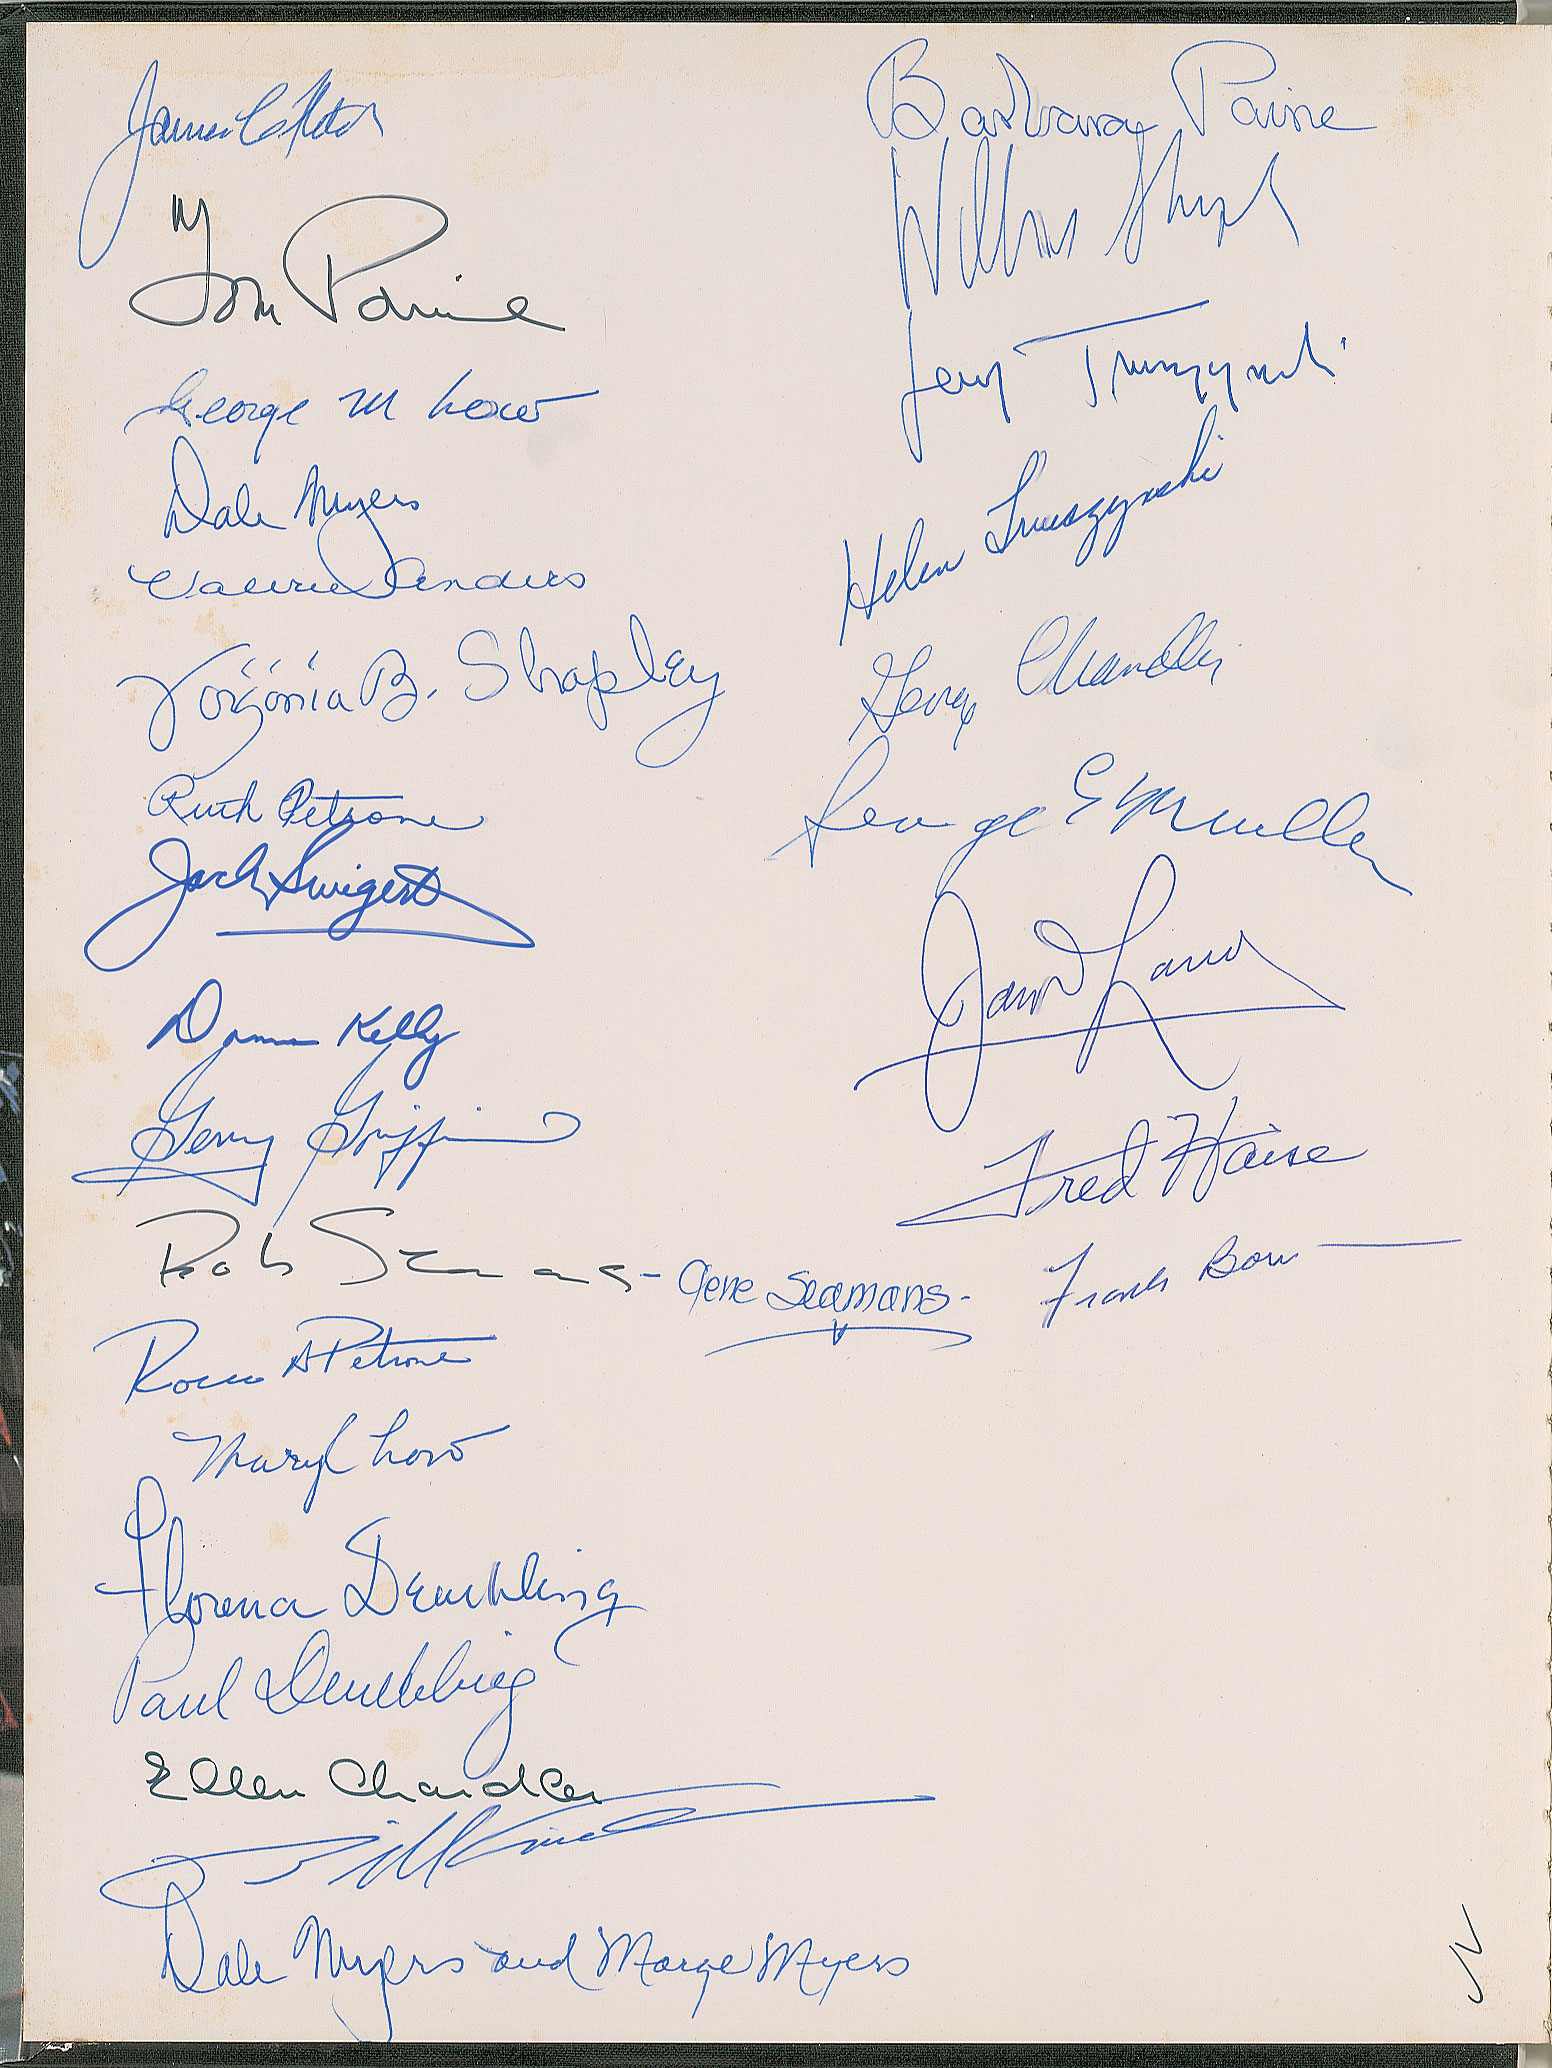 James C Fletcher
Tom Paine
George M Low
Dale Myers
Valerie Anders
Virginia B. Shapley
Ruth Petrone
Jack Swigert
Kelly
Gerry Griffin
Bob Seamans - Gene Seamans -
Rocco A Petrone
Mary R Low
Florence Dembling
Paul Dembling
Ellen Chandler
Dale Myers and Marge Myers
Barbara Paine
Willis Shapley
Gerry Truszynski
Helen Truszynski
George Chandler
George E Mueller
James Lovell
Fred Haise
Frank Borman